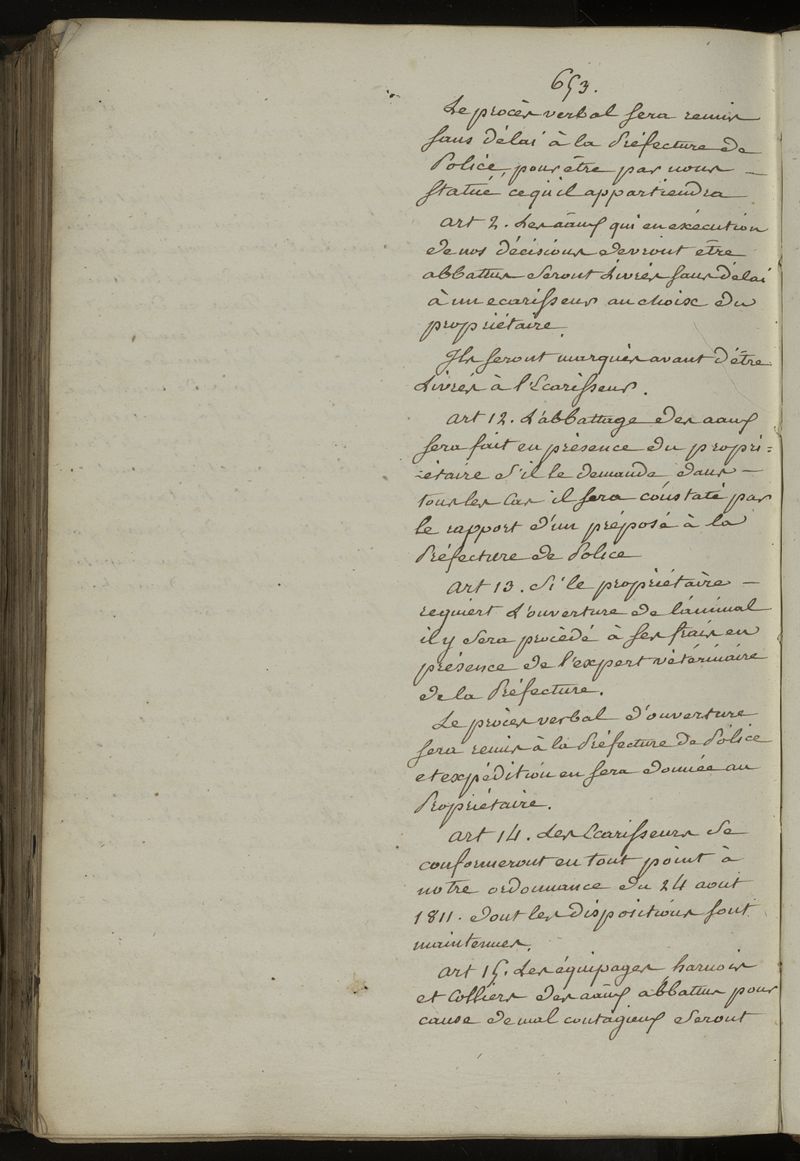 653.
Le procès verbal sera remis
sans délai à la Préfecture de
Police, pour être par nous —
statué, ce qu'il appartiendra
art 2. Les aâux qui en exécution
de nos décisions devront être
abbattus seront livrés sans délai
à un ecarisseur au choix du
propriétaire.
Ils seront marqués avant d'être
livrés à l'Ecarisseur.
art 12. L'abbattage des aaux
sera fait en présence du propri=
-étaire s'il le demande dans —
tous les cas il sera constaté par
le rapport d'un préposé à la
Préfecture de Police
art 13. Si le propriétaire —
requiert l'ouverture de l'animal
il y sera procédé à ses frais en
présence de l'expert vétérinaire
de la Préfecture.
Le procès verbal d'ouverture
sera remis à la Préfecture de Police
et expédition en sera donnée au
Propriétaire.
art 14. Les Ecarisseurs se
conformeront en tout point à
notre ordonnance du 24 aout
1811. dont les dispositions sont
maintenues.
art 15. Les équipages, harnois
et Colliers des aâux abbattus pour
cause de mal contagieux seront